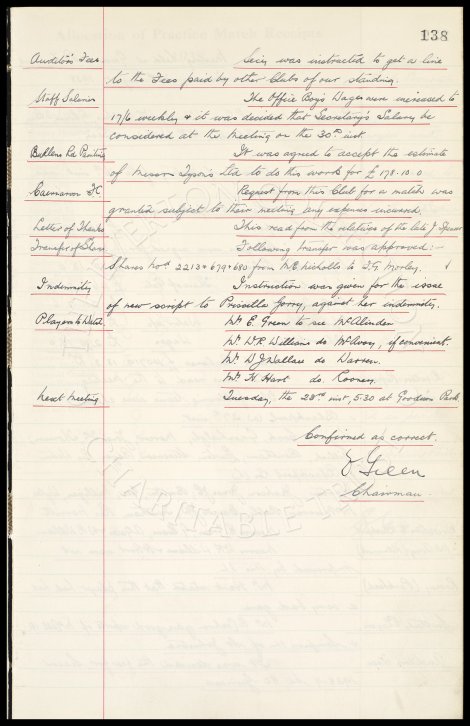 138
Auditors Fees Secy was instructed to get a line
to the Fees paid by other Clubs of our standing.
Staff Salaries The Office Boy's Wages were increased to
17/6 weekly & it was decided that Secretary's Salary be
considered at the Meeting on the 30th inst.
Bullens Rd Painting It was agreed to accept the estimate
of Messrs Tyson's Ltd to do this work for £178.10.0
Caernarvon FC Request from this Club for a match was
granted subject to their meeting any expenses incurred.
Letter of Thanks This read from the relatives of the late J
Transfer of Shares Following transfer was approved:-
Shares Nos 2213 & 679 & 680 from M.E. Nicholls to T.G. Morley.
Indemnity Instruction was given for the issue
of new script to Priscilla Gorry, against her indemnity.
Players to Watch Mr E. Green to see McAlinden
Mr W.R. Williams do McAvoy, if convenient.
Mr D J Wallace do Warren.
Mr H. Hart do. Rooney.
Next Meeting Tuesday, the 23rd inst, 5.30 at Goodison Park.
Confirmed as correct.
E Green
Chairman.
EVERTON
CHARITABLE